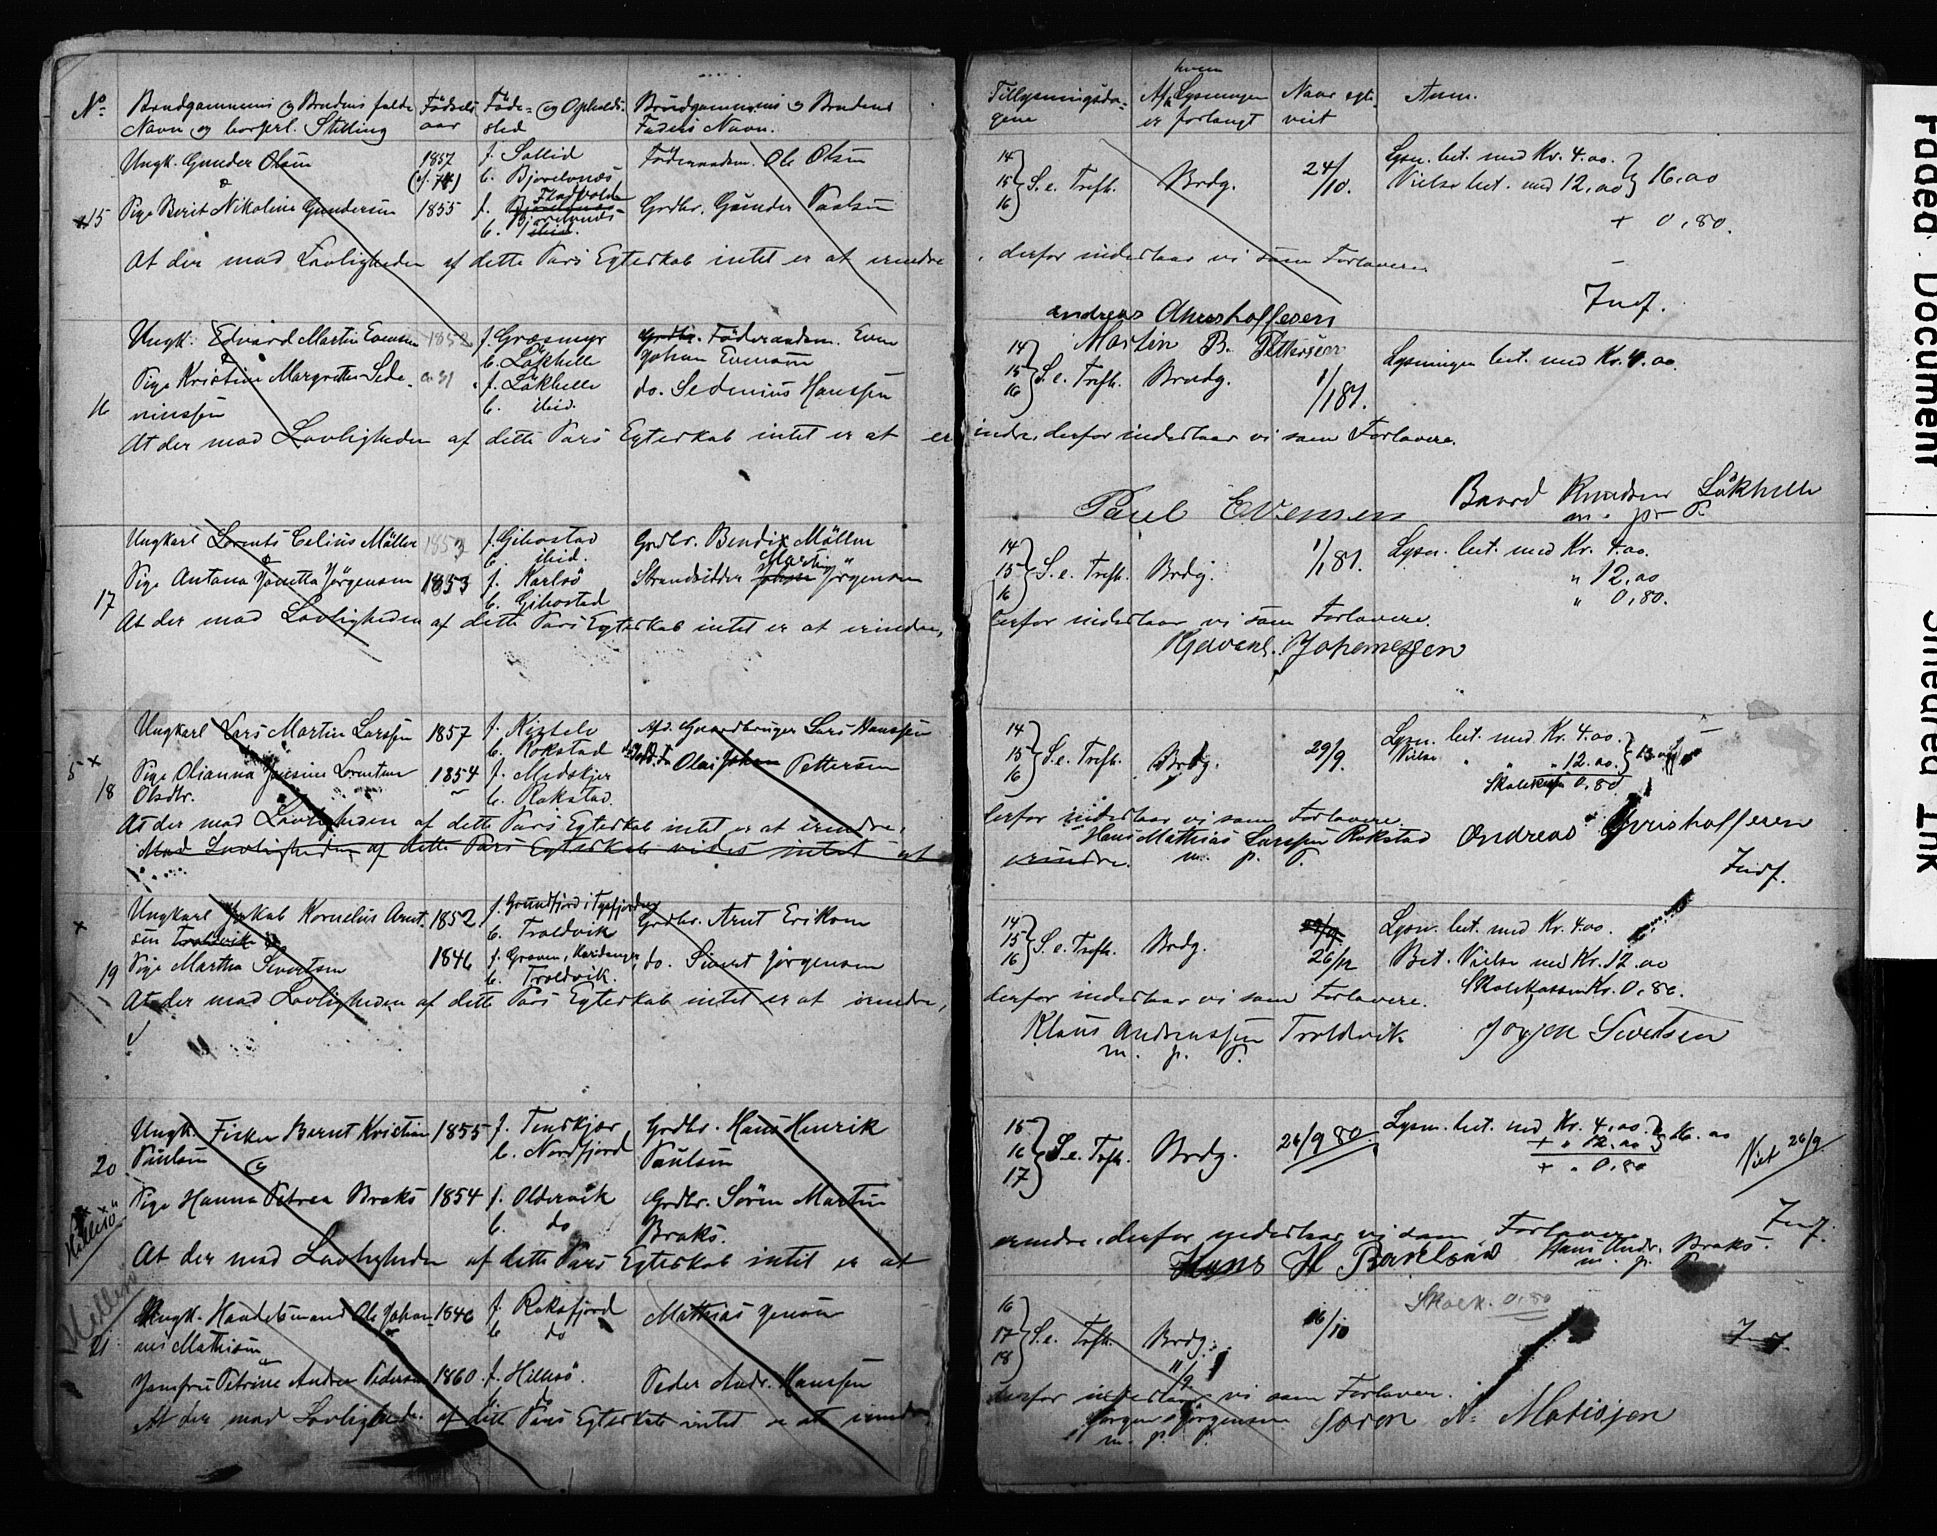 No
Brudgommens og Brudens fulde
Navn og borgerl. Stilling
Fødsels
aar
Føde- og Opholds-
sted
Brudgommens og Brudens
Faders Navn.
Tillysningsda-
gene
hvem
Af Lysningen
er forlangt
Naar egte-
viet
Anm.
Ungk. Gunder Olsen
1857
f. Sollid
b. Bjorelvnes
Føderaadsm. Ole Olsen
&
15
Pige Berit Nikoline Gundersen
1855
f.
b.
Bjorelvnes
ibid.
Grdbr. Gunder Paulsen
14
15
16
S. e. Trefh.
Brdg.
24/10.
Lysn. bet. med Kr. 4.00.
Vielse bet. med 12.00
16.00
+ 0,80.
At der mod Lovligheden af dette Pars Egteskab intet er at erindre
, derfor indestaar vi som Forlovere.
Indf.
Andreas
Martin B. Pettersen
Ungk. Edvard Martin Evensen
1852
f. Græsmyr
b. Løkhelle
Grdbr. Føderaadsm. Even
Johan Evensen
&
Pige Kristine Margrethe Sede-
ninssen
f. Løkhelle
b. ibid.
do. Sedenius Hanssen
16
14
15
16
S. e. Trefh.
Brudg.
1/1 81.
Lysningen bet. med Kr. 4.00.
At der mod Lovligheden af dette Pars Egteskab intet er at er
indre, derfor indestaar vi som Forlovere.
Paul Evensen
Baard Knudsen Løkhelle
m. p. P.
Ungkarl Lorents Celius Møller
1853
f. Gibostad
b. ibid.
Grdbr. Bendix Møller
Pige Antona Jonetta Jørgensen
1853
f. Karlsø
b. Gibostad
Strandsidder Johan Martin Jørgensen
17
14
15
16
S. e. Trefh.
Brdg.
1/1 81.
Lysn. bet. med Kr. 4.00.
" 12.00
" 0,80.
At der mod Lovligheden af dette Pars Egteskab intet er at erindre,
derfor indestaar vi som Forlovere.
Johannessen
Ungkarl Lars Martin Larssen
1857
b. Rokstad
Afd. Gaardbruger Lars Hanssen
5 x
18
Pige Olianna Lorentine
Olsdtr.
1854
f. Medskjer
b. Rokstad.
Ole Johan Pettersen
14
15
16
S. e. Trefh.
Brdg.
29/9.
Lysn. bet. med Kr. 4.00.
Vielse " " 12.00.
0,80
At der mod Lovligheden af dette Pars Egteskab intet er at erindre,
derfor indestaar vi som Forlovere.
Mod Lovligheden af dette Pars Egteskab vides intet at
erindre.
Hans Mathias Larssen Rokstad
m. p. P.
Andreas
Indf.
x
Ungkarl Jakob Kornelius Arnt-
sen Troldvik &
1852
f. Grundfjord i
b. Troldvik
Grdbr. Arnt Eriksen
19
Pige Martha Sivertsen
1846
f. Graven, Hardanger,
b. Troldvik.
do. Sivert Jørgensen
14
15
16
S. e. Trefh.
Brdg.
26/12
Lysn. bet. med Kr. 4.00.
Bet. Vielse med Kr. 12.00
Skolekassen Kr. 0,80.
At der mod Lovligheden af dette Pars Egteskab intet er at erindre,
derfor indestaar vi som Forlovere.
Klaus Andreassen Troldvik
m. p. P.
Jørgen Sivertsen
Ungk. Fisker Bernt Kristian
Paulsen
1855
f. Tenskjær
b. Nordfjord
Grdbr. Hans Henrik
Paulsen
20
&
Hillesø
Pige Hanna Petrea Braks
1854
f. Oldervik
b. do
Grdbr. Søren Martin
Braks.
15
16
17
S. e. Trefh.
Brdg.
26/9 80.
Lysn. bet. med Kr. 4.00
+ " 12.00
+ " 0,80
Viet 26/9
At der mod Lovligheden af dette Pars Egteskab intet er at
erindre, derfor indestaar vi som Forlovere.
Indf.
Hans H
Hans Andr. Braks.
m. p. P.
Hillesø
21
Ungk. Handelsmand Ole Johan-
nes Mathisen
1846
f. Roksfjord
b. do
Mathias Jensen
Jomfru Petrine Andrea Pedersen
1860
f. Hillesø.
b. do
Peder Andr. Hanssen
16
17
18
S. e. Trefh.
Brdg.
16/10
Skolek. 0,80
Indf.
At der mod Lovligheden af dette Pars Egteskab intet er at erindre,
derfor indestaar vi som Forlovere.
Jørgen Jørgensen
m. p. P.
Søren N. Matisjen
Faded Document
Smeared Ink